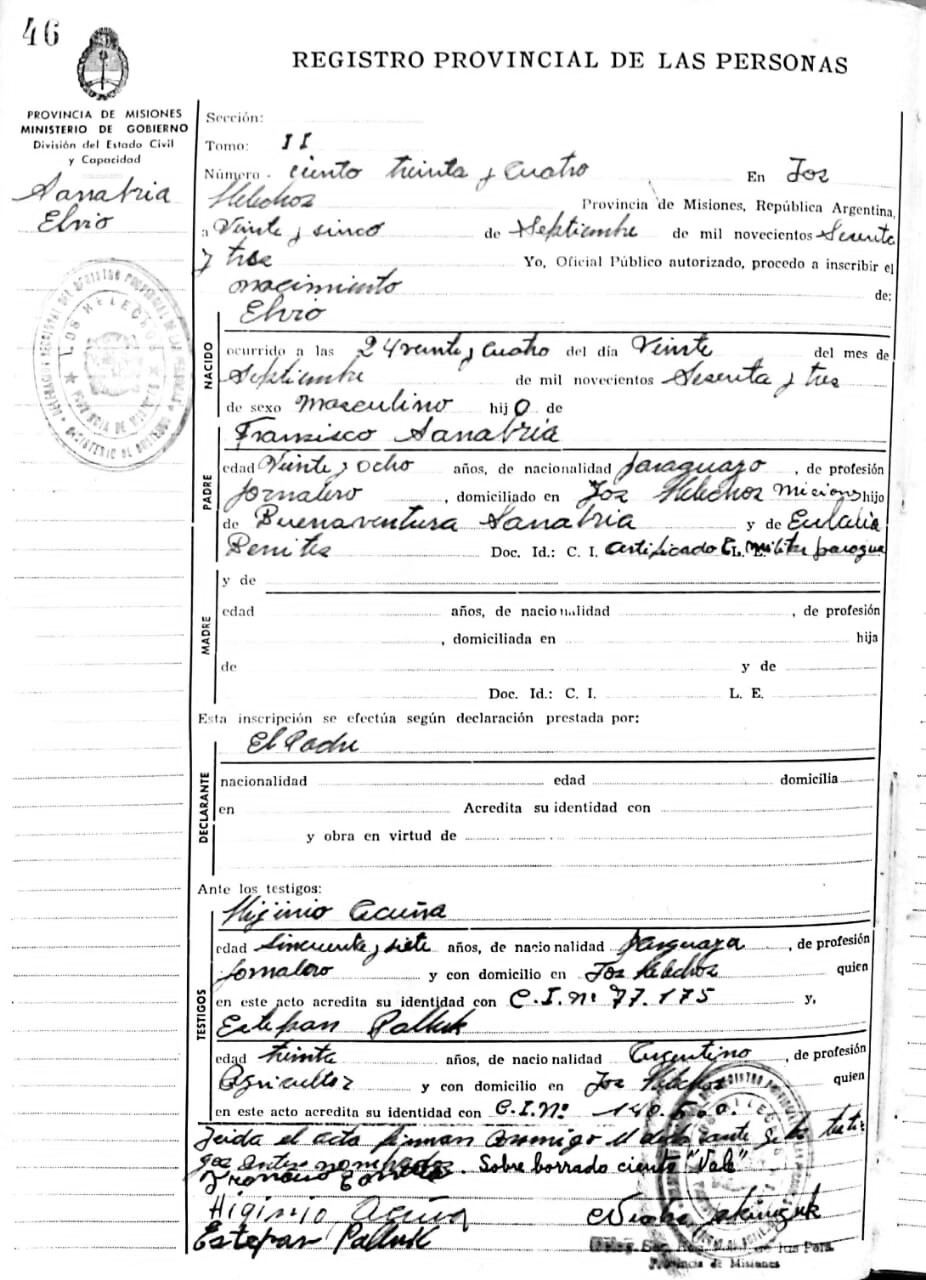 46
REGISTRO PROVINCIAL DE LAS PERSONAS
PROVINCIA DE MISIONES
MINISTERIO DE GOBIERNO
División del Estado Civil
y Capacidad
Sanabria
Elvio
Sección:
Tomo: II
Número - ciento treinta y cuatro En Los
Helechos Provincia de Misiones, República Argentina,
a Veinte y sinco de Septiembre de mil novecientos Sesenta
y tres Yo, Oficial Público autorizado, procedo a inscribir el
nacimiento de:
NACIDO
Elvio
ocurrido a las 24 veinte y cuatro del día Veinte del mes de
Septiembre de mil novecientos Sesenta y tres
de sexo masculino hijo de
PADRE
Fransisco Sanabria
edad Veinte y ocho años, de nacionalidad paraguayo, de profesión
Jornalero, domiciliado en Los Helechos Misiones hijo
de Buenaventura Sanabria y de Eulalia
Benites Doc. Id.: C. I. Certificado L. E. militar paragua
MADRE
y de
edad años, de nacionalidad , de profesión
, domiciliada en hija
de y de
Doc. Id.: C. I. L. E.
Esta inscripción se efectúa según declaración prestada por:
DECLARANTE
El Padre
nacionalidad edad domicilia
en Acredita su identidad con
y obra en virtud de
Ante los testigos:
TESTIGOS
Higinio Acuña
edad Sincuenta y siete años, de nacionalidad paraguaya, de profesión
Jornalero y con domicilio en Los Helechos quien
en este acto acredita su identidad con C.I. Nº 77.175 y,
Estepan Palluk
edad treinta años, de nacionalidad Argentino, de profesión
Agricultor y con domicilio en Los Helechos quien
en este acto acredita su identidad con C.I. Nº
Leida el acto firman conmigo el testi-
gos antes . Sobre borrado ciento "Vale"
Higinio Acuña
Estepan Palluk
Provincia de Misiones
LOS HELECHOS
PROVINCIA DE MISIONES